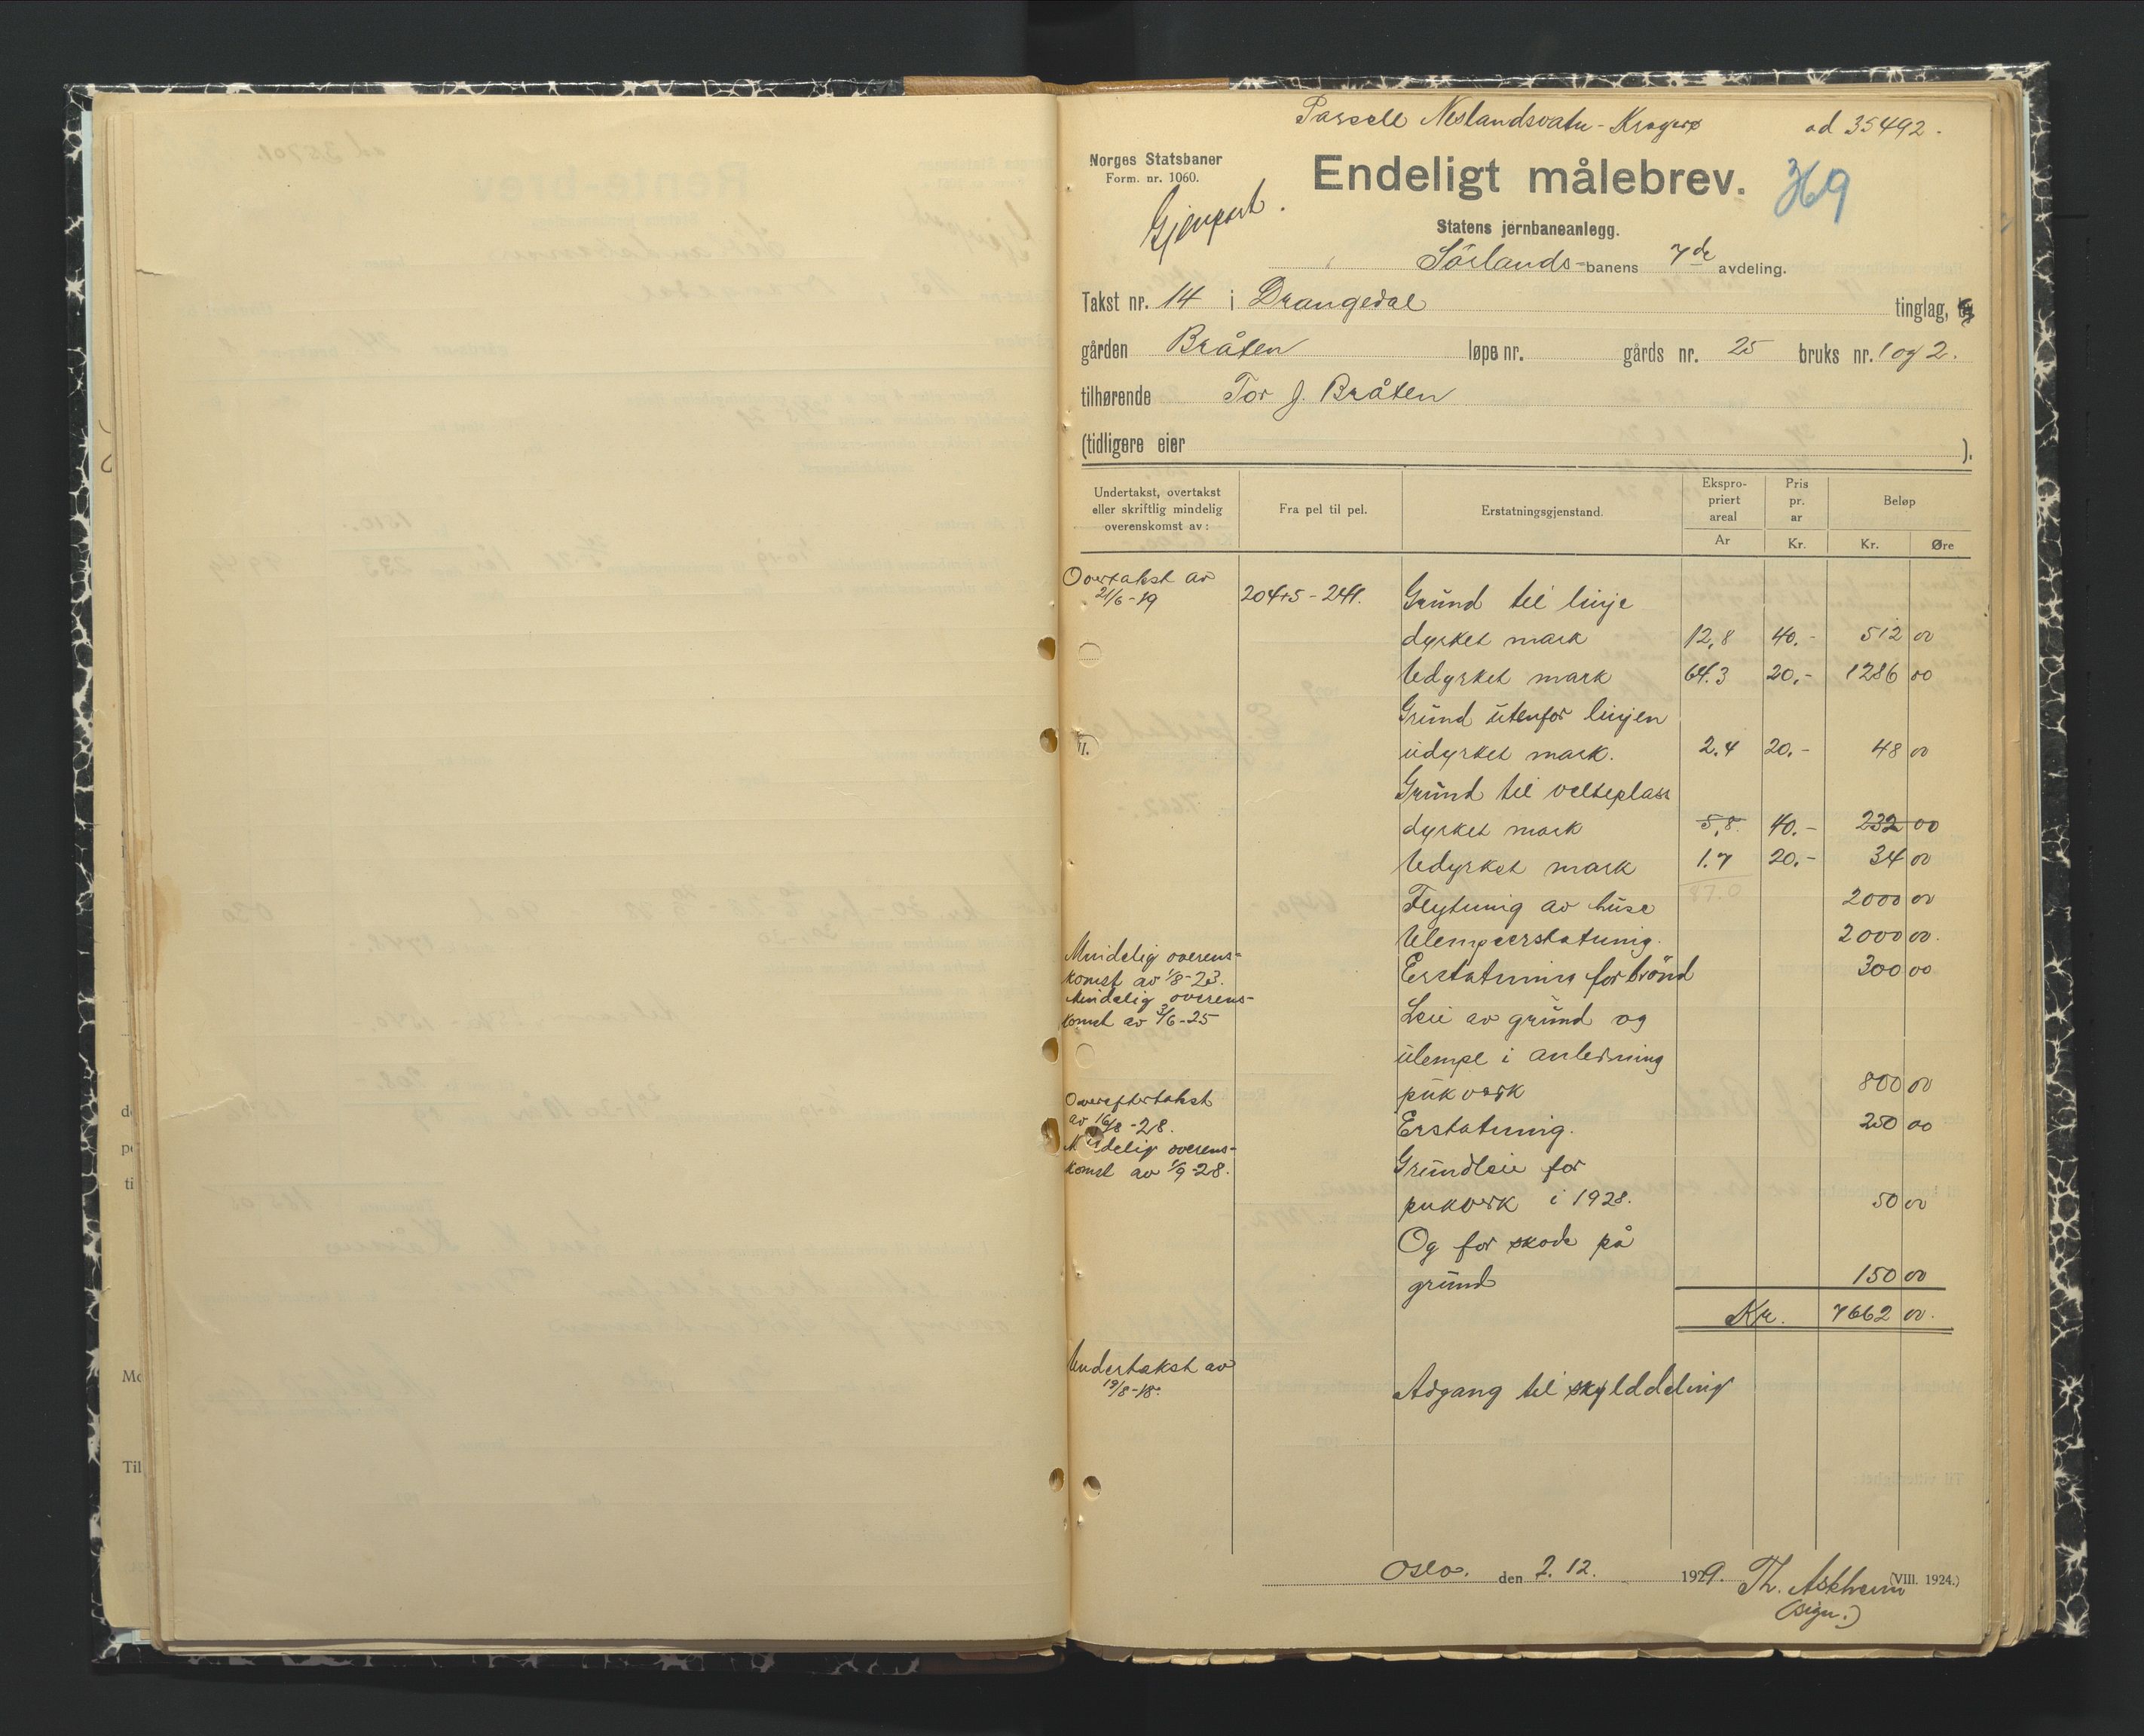 Parsell Neslandsvatn - Kragerø
ad 35492.
Norges Statsbaner
Form. nr. 1060.
Gjenpart.
Endeligt målebrev.
369
Statens jernbaneanlegg.
Sørlands-banens 7de avdeling.
Takst nr. 14 i Drangedal tinglag,
gården Bråten løpe nr. gårds nr. 25 bruks nr. 1 og 2.
tilhørende Tor J. Bråten
(tidligere eier ).
Undertakst, overtakst eller skriftlig mindelig overenskomst av:
Fra pel til pel.
Erstatningsgjenstand.
Ekspropriert areal
Pris pr. ar
Beløp
Ar Kr. Kr. Øre
Overtakst av
21/6-19 204+5 - 241. Grund til linje
dyrket mark 12,8 40.- 512 00
Udyrket mark 64.3 20.- 1286 00
Grund utenfor linjen
udyrket mark. 2.4 20.- 48 00
Grund til velteplass
dyrket mark 5,8 40.- 232 00
Udyrket mark 1.7 20.- 34 00
87.0
Flytning av huse 2000 00
Ulempeerstatning. 2000 00.
Mindelig overens-
komst av 1/8-23. Erstatning for brønd 300 00
Mindelig overens-
komst av 3/6-25 Leie av grund og
ulempe i anledning
pukverk 800 00
Overeftertakst
av 16/8-28. Erstatning. 250 00
Mindelig overens-
komst av 1/9-28. Grundleie for
pukverk i 1928. 50 00
Og for skade på
grund 150 00
Kr. 7662 00.
Undertakst av
19/8-18. Adgang til skylddeling
Oslo. den 2. 12. 1929. Th. Askheim
(VIII. 1924.)
(sign.)